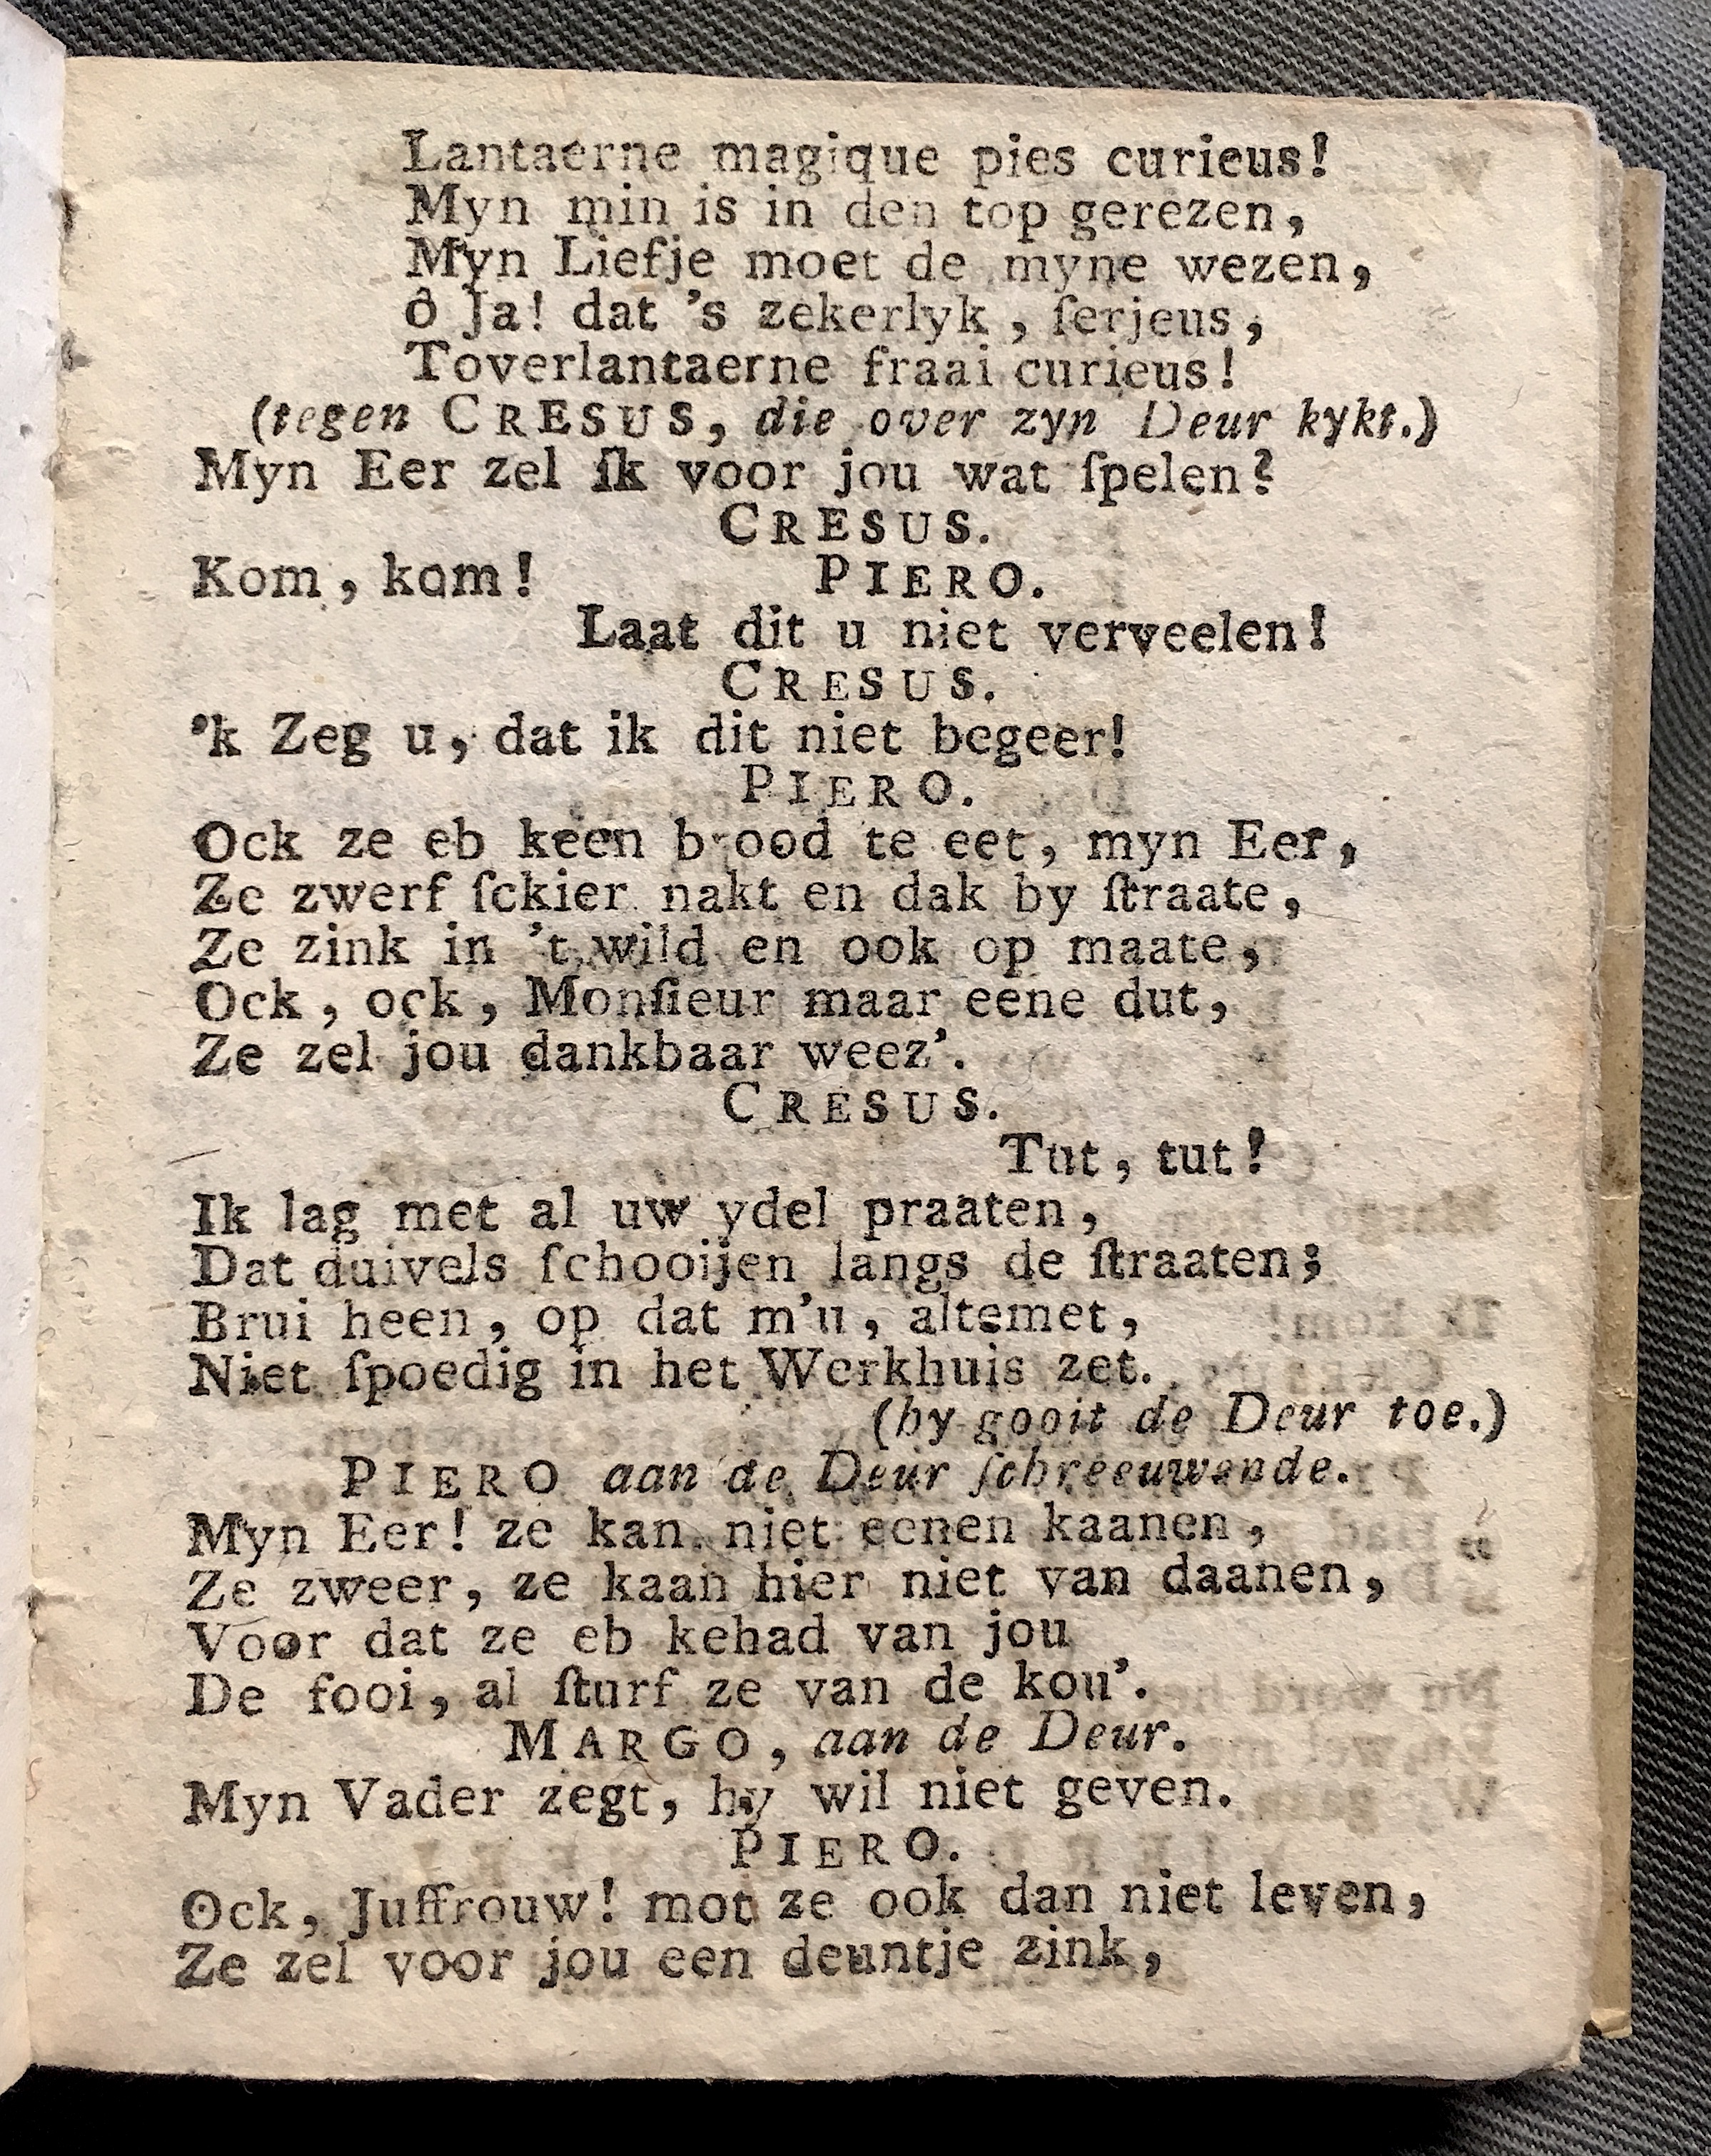 Lantaerne magique pies curieus!
Myn min is in den top gerezen,
Myn Liefje moet de myne wezen,
ô Ja! dat 's zekerlyk, ſerjeus,
Toverlantaerne fraai curieus!
(tegen CRESUS, die over zyn Deur kykt.)
Myn Eer zel ſk voor jou wat ſpelen?
CRESUS.
Kom, kom! PIERO.
Laat dit u niet verveelen!
CRESUS.
'k Zeg u, dat ik dit niet begeer!
PIERO.
Ock ze eb keen brood te eet, myn Eer,
Ze zwerf ſckier nakt en dak by ſtraate,
Ze zink in 't wild en ook op maate,
Ock, ock, Monſieur maar eene dut,
Ze zel jou dankbaar weez'.
CRESUS.
Tut, tut!
Ik lag met al uw ydel praaten,
Dat duivels ſchooijen langs de ſtraaten;
Brui heen, op dat m'u, altemet,
Niet ſpoedig in het Werkhuis zet.
(hy gooit de Deur toe.)
PIERO aan de Deur ſchreeuwende.
Myn Eer! ze kan niet eenen kaanen,
Ze zweer, ze kaan hier niet van daanen,
Voor dat ze eb kehad van jou
De fooi, al ſturf ze van de kou'.
MARGO, aan de Deur.
Myn Vader zegt, hy wil niet geven.
PIERO.
Ock, Juffrouw! mot ze ook dan niet leven,
Ze zel voor jou een deuntje zink,